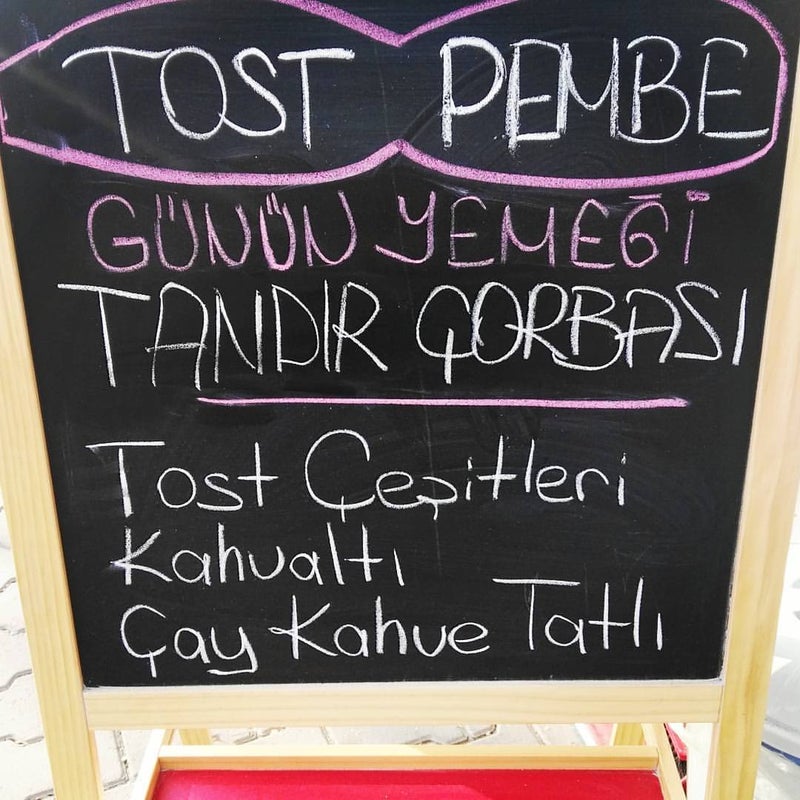 TOST PEMBE
GÜNÜN YEMEĞİ
TANDIR ÇORBASI
Tost Çeşitleri
Kahvaltı
Çay Kahve Tatlı